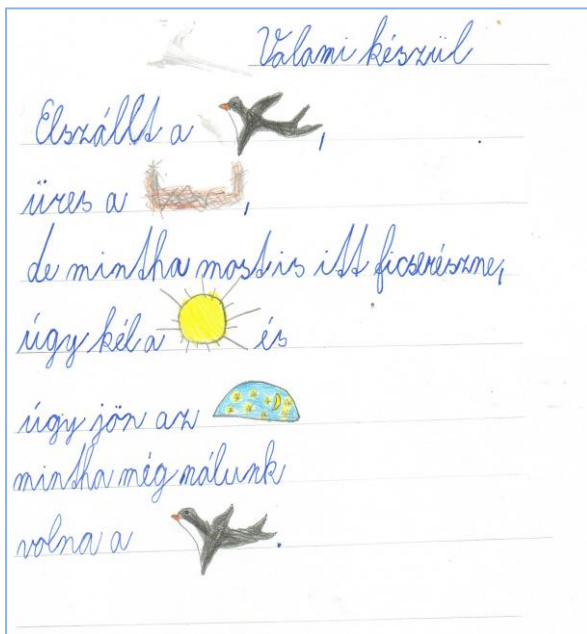 Valami készül
Elszállt a ,
üres a ,
de mintha most is itt ficserészne,
úgy kél a és
úgy jön az
mintha még nálunk
volna a .